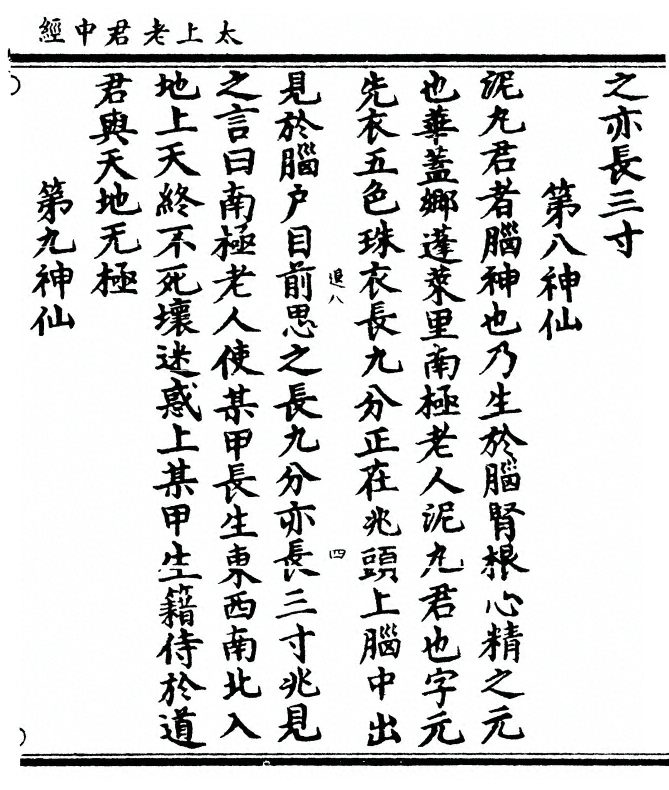 太上老君中經
之亦長三寸
第八神仙
泥丸君者腦神也乃生於腦腎根心精之元
也華蓋鄉蓬萊里南極老人泥丸君也字元
先衣五色珠衣長九分正在兆頭上腦中出
退八 四
見於腦戶目前思之長九分亦長三寸兆見
之言曰南極老人使某甲長生東西南北入
地上天終不死壞迷惑上某甲生籍侍於道
君與天地无極
第九神仙